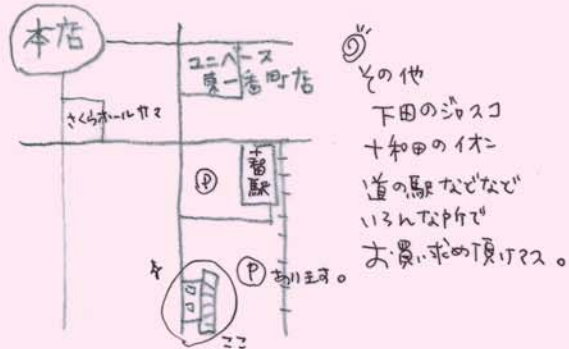 本店
ユニバース
東一番町店
さくらホール
十番駅
P
P あります。
ここ
その他
下田のジャスコ
十和田のイオン
道の駅などなど
いろんな所で
お買い求め頂けマス。